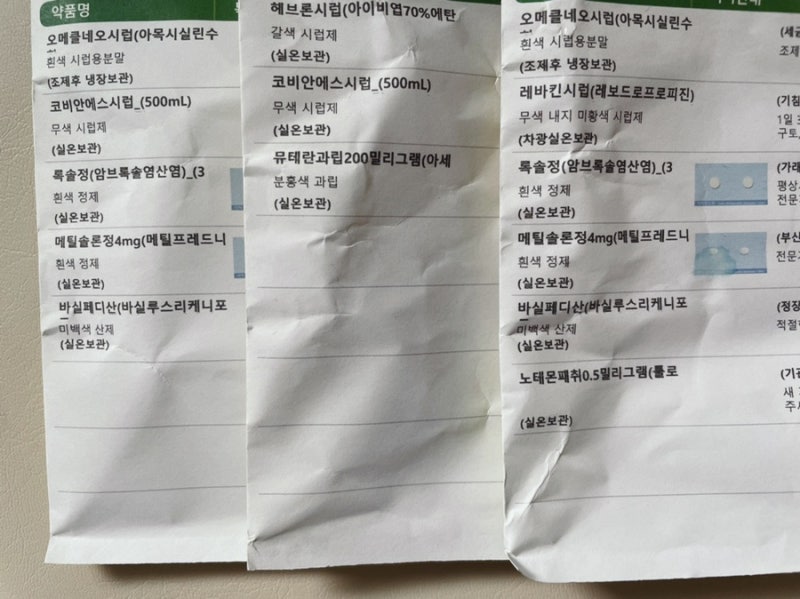 약품명
오메클네오시럽(아목시실린수
흰색 시럽용분말
(조제후 냉장보관)
코비안에스시럽_(500mL)
무색 시럽제
(실온보관)
록솔정(암브록솔염산염)_(3
흰색 정제
(실온보관)
메틸솔론정4mg(메틸프레드니
흰색 정제
(실온보관)
바실페디산(바실루스리케니포
미백색 산제
(실온보관)
헤브론시럽(아이비엽70%에탄
갈색 시럽제
(실온보관)
코비안에스시럽_(500mL)
무색 시럽제
(실온보관)
뮤테란과립200밀리그램(아세
분홍색 과립
(실온보관)
오메클네오시럽(아목시실린수
흰색 시럽용분말
(조제후 냉장보관)
(세균
조제
레바킨시럽(레보드로프로피진)
무색 내지 미황색 시럽제
(차광실온보관)
(기침
1일 3
구토,
록솔정(암브록솔염산염)_(3
흰색 정제
(실온보관)
(가래
평상
전문
메틸솔론정4mg(메틸프레드니
흰색 정제
(실온보관)
(부신
전문
바실페디산(바실루스리케니포
미백색 산제
(실온보관)
(정장
적절
노테몬패취0.5밀리그램(툴로
(실온보관)
(기관
새
주